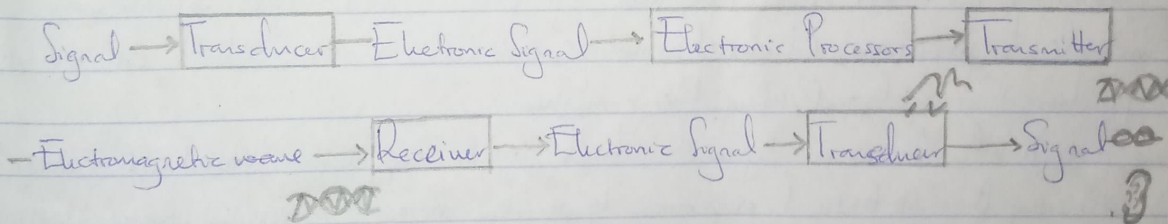 Signal Transducer Electronic Signal Electronic Processors Transmitter
Electromagnetic wave Receiver Electronic Signal Transducer Signal